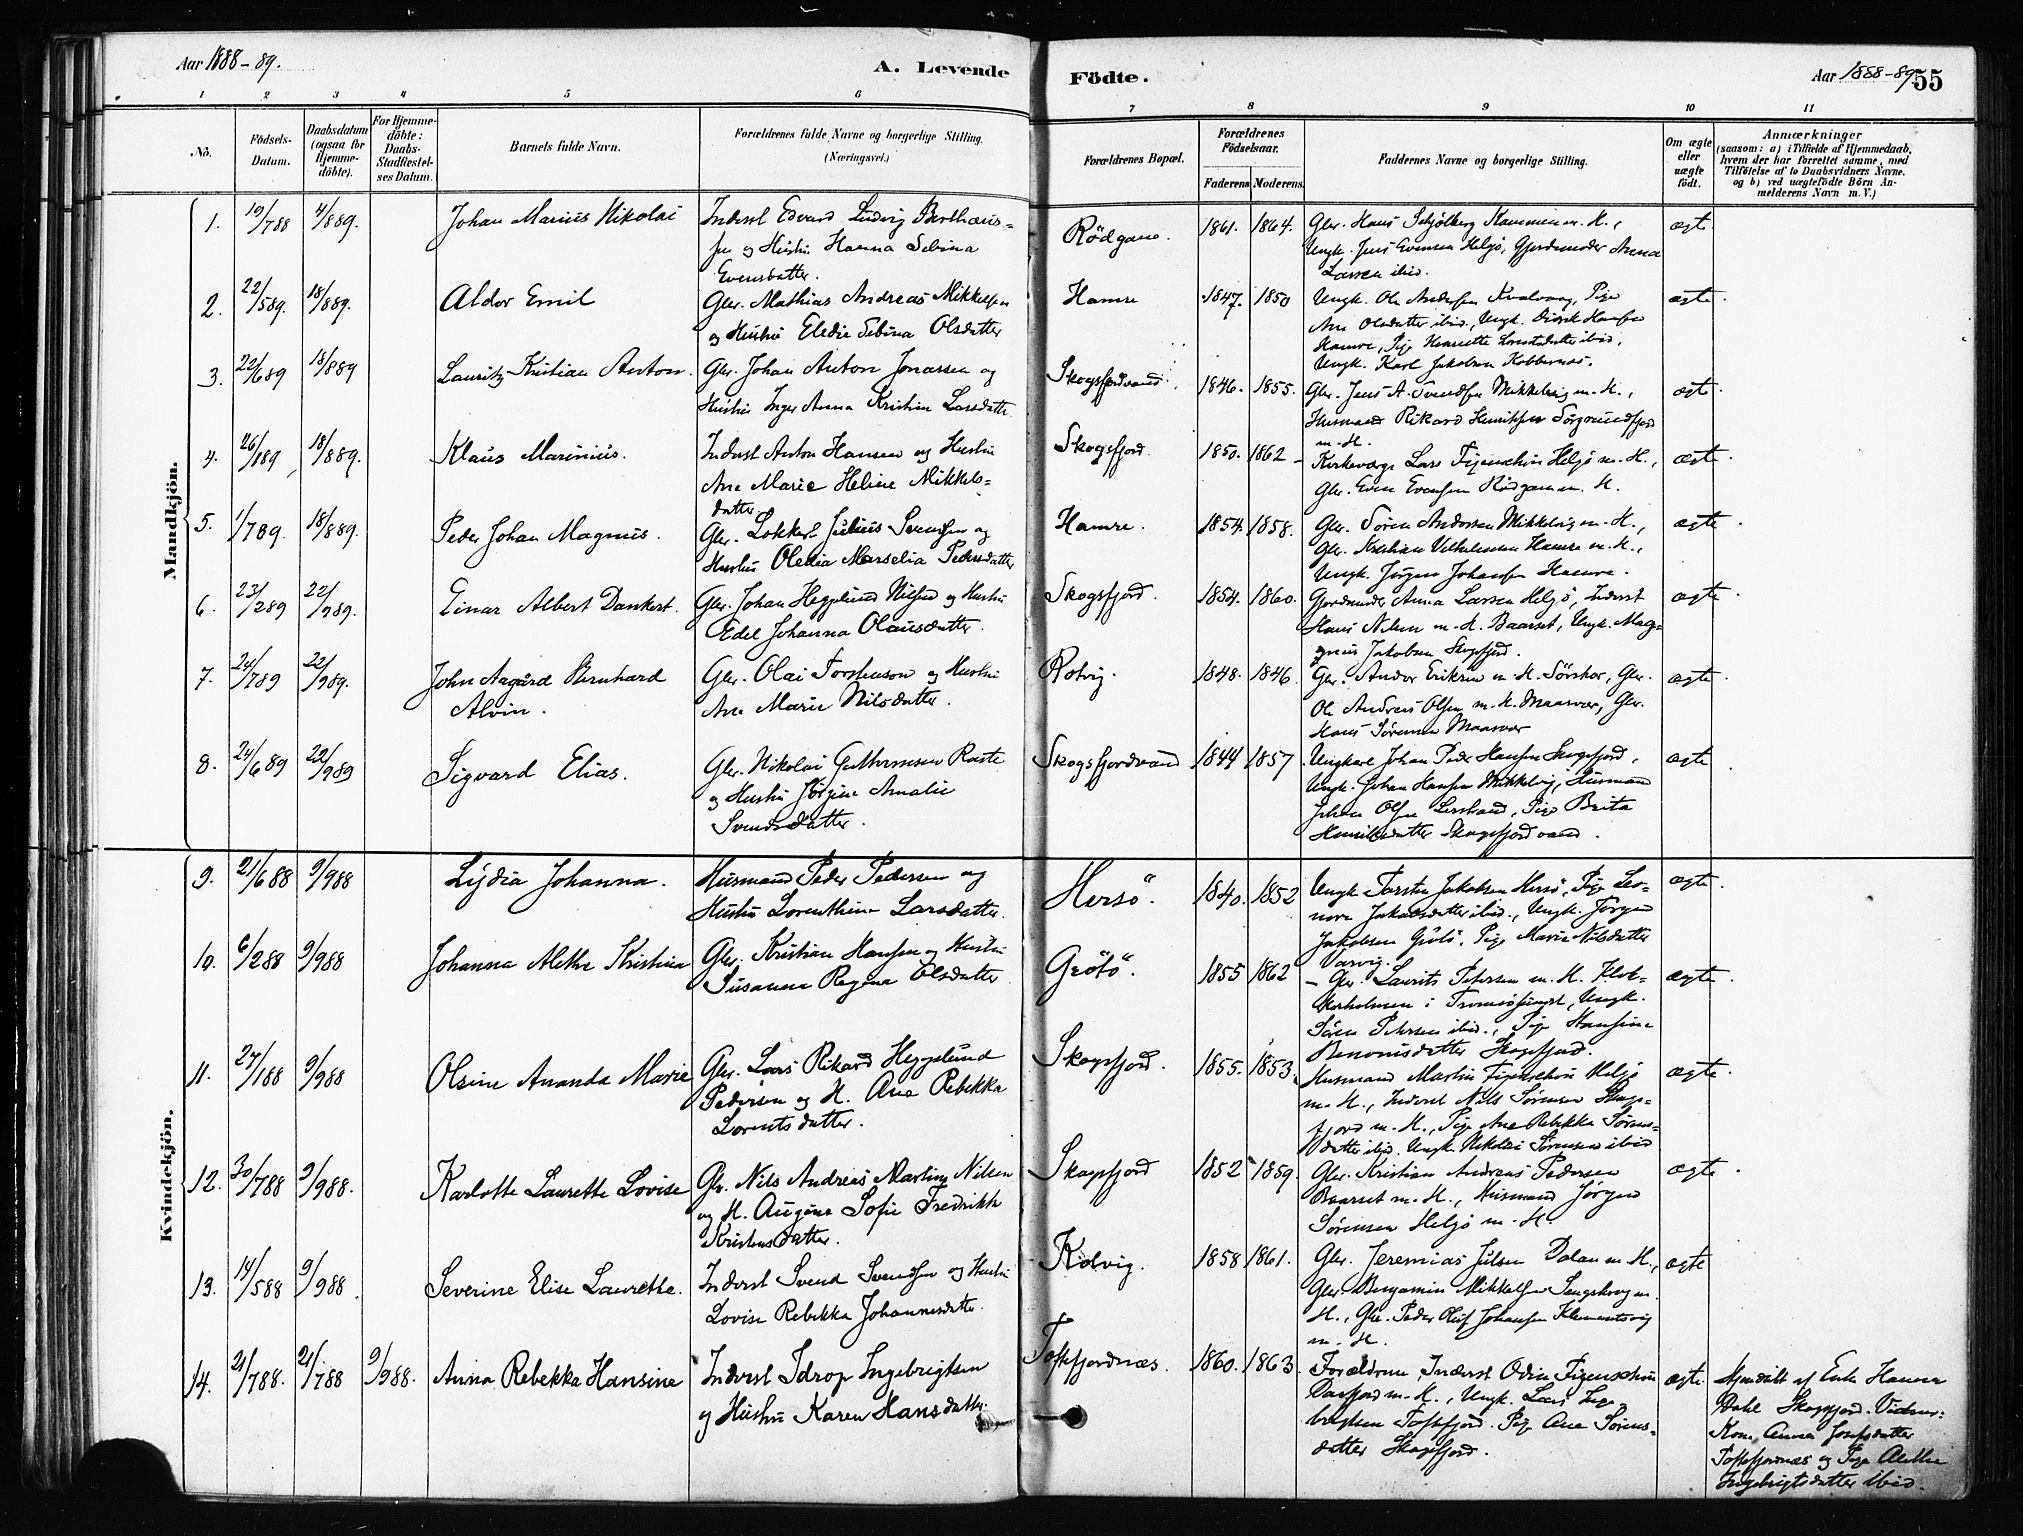 Aar 1888-89.
A. Levende
Födte.
Aar 1888-89
55
1 2 3 4 5 6 7 8 9 10 11
No.
Födsels-Datum.
Daabsdatum (ogsaa for Hjemme-döbte).
For Hjemme-döbte: Daabs-Stadfestel-ses Datum.
Barnets fulde Navn.
Forældrenes fulde Navne og borgerlige Stilling. (Næringsvei.)
Forældrenes Bopæl.
Forældrenes Födselsaar.
Faderens Moderens
Faddernes Navne og borgerlige Stilling.
Om ægte eller uægte födt.
Anmærkninger
(saasom: a) i Tilfælde af Hjemmedaab, hvem der har forrettet samme, med Tilföielse af to Daabsvidners Navne. og b) ved uægtefödte Börn An-melderens Navn m. V.)
Mandkjön.
1. 19/788 4/889. Johan Marius Nikolai
Inderst Edvard Ludvig Berthæus-
sen og Hustru Hanna Sebina
Evensdatter.
Rödgane. 1861. 1864.
Gbr. Hans Schjølberg Kammen m. H.,
Ungk. Jens Evensen Helgö, Gjordemoder Anna
Larsen ibid.
ægte.
2. 22/589. 18/889. Aldor Emil
Gbr. Mathias Andreas Mikkelsen
og Hustru Eledie Sebina Olsdatter
Hamre 1847. 1850
Ungk. Ole Andersen Kvalvaag, Pige
Ane Olsdatter ibid., Ungk. Didrik Hansen
Hamre, Pige Henriette Lorentsdatter ibid.,
Ungk. Karl Jakobsen Kobbernæs.
ægte.
3. 22/689 18/889 Lauritz Kristian Anton.
Gbr. Johan Anton Jonassen og
Hustru Inger Anna Kristine Larsdatter
Skogsfjordvand. 1846. 1855.
Gbr. Jens A. Svendsen Mikkelvig m. H.,
Husmand Rikard Henriksen Sörgrundfjord
m. H.
ægte
4. 26/189 18/889. Klaus Marinius.
Inderst Anton Hansen og Hustru
Ane Marie Heline Mikkels-
datter
Skogsfjord. 1850. 1862
Kirkeværge Lars Figenschou Helgö m. H.,
Gbr. Even Evensen Rödgane m. H.
ægte.
5. 1/789. 18/889. Peder Johan Magnus.
Gbr. Lokkert Julius Svendsen og
Hustru Oledia Marselia Pedersdatter
Hamre. 1854. 1858.
Gbr. Sören Andersen Mikkelvig m. H.,
Gbr. Kristian Vilhelmsen Hamre m. H.,
Ungk. Jörgen Johansen Hamre.
ægte.
6. 23/289 22/989. Einar Albert Dankert.
Gbr. Johan Hegglund Nilsen og Hustru
Edel Johanna Olausdatter.
Skogsfjord. 1854. 1860.
Gjordemoder Anna Larsen Helgö, Inderst
Hans Nilsen m. H. Baarset, Ungk. Mag-
gnus Jakobsen Skogsfjord.
ægte.
7. 24/789 22/989. John Aagård Bernhard
Alvin.
Gbr. Olai Torstenson og Hustru
Ane Marie Nilsdatter.
Rotvig. 1848. 1846.
Gbr. Andor Eriksen m. H. Sörskar, Gbr.
Ole Andreas Olsen m. H. Maasvær, Gbr.
Hans Sörensen Maasvær
ægte.
8. 24/689 22/989 Sigvard Elias.
Gbr. Nikolai Guttormsen Raste
og Hustru Jörgine Amalie
Svendsdatter.
Skogsfjordvand 1844 1857
Ungkarl Johan Peder Hansen Skogsfjord,
Ungk. Johan Hansen Mikkelvig, Husmand
Johan Olsen Leirstrand, Pige Brita
Henriksdatter Skogsfjordvand.
ægte
Kvindekjön.
9. 21/688 9/988 Lydia Johanna.
Husmand Peder Pedersen og
Hustru Lorenthine Larsdatter.
Hersö. 1840. 1852
Ungk. Torsten Jakobsen Hersö, Pige Leo-
nore Jakobsdatter ibid., Ungk. Jörgen
Jakobsen Grötö, Pige Marie Nilsdatter
Vorvig.
ægte.
10. 6/288 9/988 Johanna Alethe Kristina
Gbr. Kristian Hansen og Hustru
Susanna Regine Olsdatter
Grötö. 1855 1862
Gbr. Laurits Petersen m. H. Flok-
skarholmen i Tromsösundet, Ungk.
Sören Petersen ibid., Pige Hansine
Benonisdatter Skogsfjord.
ægte.
11. 27/188 9/988 Olsine Ananda Marie
Gbr. Lars Rikard Hegglund
Pedersen og H. Ane Rebekka
Lorentsdatter.
Skogsfjord. 1855. 1853.
Husmand Martin Figenschou Helgö
m. H., Inderst Nils Sörensen Skogs-
fjord m. H., Pige Ane Rebekka Sörens-
datter ibid. Ungk. Nikolai Sörensen ibid
ægte.
12. 30/788 9/988. Karlotte Laurette Lovise
Gbr. Nils Andreas Martin Nilsen
og H. Augine Sofie Fredrikke
Kristensdatter.
Skogsfjord 1852 1859.
Gbr. Kristian Andreas Pedersen
Baarset m. H., Husmand Jörgen
Sörensen Helgö m. H.
ægte.
13. 14/588 9/988. Severine Elise Laurette.
Inderst Svend Svendsen og Hustru
Lovise Rebekka Johannesdatter.
Kolvig. 1858 1861.
Gbr. Jeremias Julsen Dalan m. H.,
Gbr. Benjamin Mikkelsen Sengskrog m.
H., Gbr. Peder Oluf Johansen Klementsvig
m. H.
ægte
14. 21/788. 21/788 9/988. Anna Rebekka Hansine
Inderst Idrop Ingebrigtsen
og Hustru Karen Hansdatter.
Toftefjordnæs. 1860. 1863.
Forældrene Inderst Odin Figenschou
Daafjord m. H., Ungk. Lars Inge-
brigtsen Toftefjord. Pige Ane Sörens-
datter Skogsfjord.
ægte.
Hjemdöbt af Enke Hanna
Dahl Skogsfjord. Vidner:
Kone Anna Josefsdatter
Toftefjordnæs og Pige Alethe
Ingebrigtsdatter ibid.